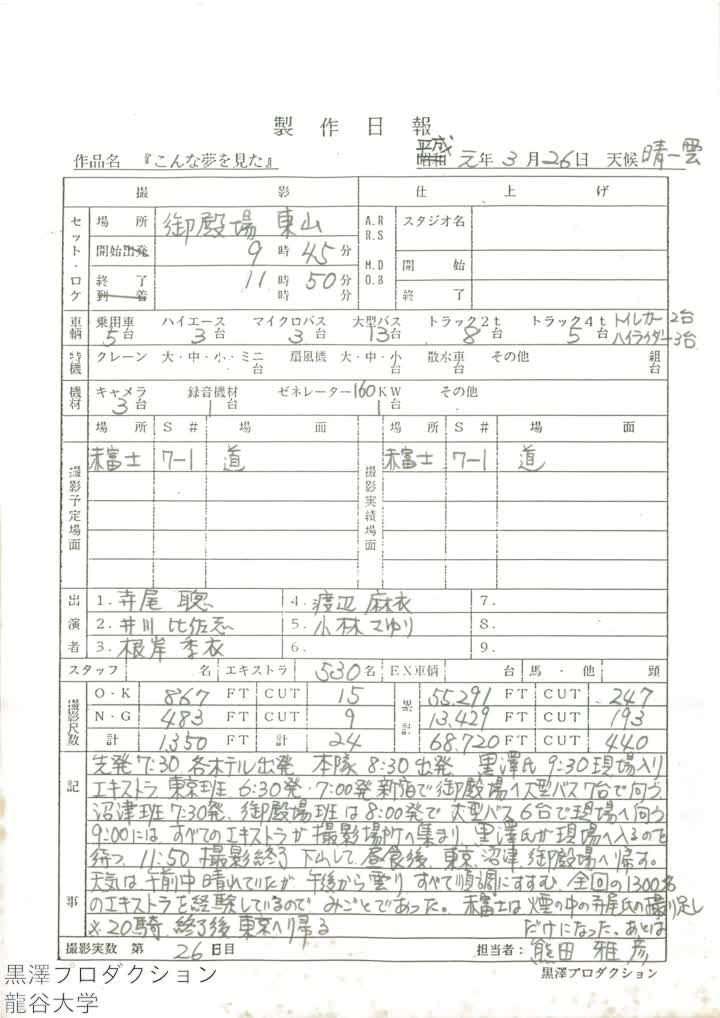 製作日報
作品名 『こんな夢を見た』 平成 元年 3月26日 天候 晴一雲
撮影 仕上げ
セット・ロケ 場所 御殿場 東山 A.R R.S スタジオ名
開始出発 9時45分
終了 11時50分 M.D O.B 開始
到着 時 分 終了
車輌 乗用車 ハイエース マイクロバス 大型バス トラック2t トラック4t トイレカー2台
5台 3台 3台 13台 8台 5台 ハイライダー3台
特機 クレーン 大・中・小・ミニ 扇風機 大・中・小 散水車 その他 組
台 台 台 台
機材 キャメラ 録音機材 ゼネレーター160KW その他
3台 1台 1台
場所 S# 場面 場所 S# 場面
撮影予定場面 赤富士 7-1 道 撮影実績場面 赤富士 7-1 道
出演者 1.寺尾 聰 4.渡辺 麻衣 7.
2.井川 比佐志 5.小林 さゆり 8.
3.根岸 季衣 6. 9.
スタッフ 名 エキストラ 530名 EX車輌 台 馬・他 頭
撮影尺数 O・K 867 FT CUT 15 累計 55,291 FT CUT 247
N・G 483 FT CUT 9 13,429 FT CUT 193
計 1350 FT 計 24 68,720 FT CUT 440
記事 先発7:30 各ホテル出発 本隊8:30出発 黒澤氏 9:30現場入り
エキストラ 東京班 6:30発・7:00発 新宿で御殿場へ大型バス7台で向う
沼津班7:30発、御殿場班は8:00発で 大型バス6台で現場へ向う
9:00には すべてのエキストラが撮影場所へ集まり 黒澤氏が現場へ入るのを
待つ、11:50 撮影終了 下山して 昼食後、東京 沼津 御殿場へ帰す。
天気は午前中晴れていたが 午後から曇り すべて順調にすすむ、全回の1300名
のエキストラを経験しているので みごとであった。赤富士は煙の中の寺尾氏の撮り足し
だけになった。あとは
※20騎 終了後東京へ帰る
撮影実数 第 26日目 担当者: 熊田 雅彦
黒澤プロダクション
黒澤プロダクション
龍谷大学